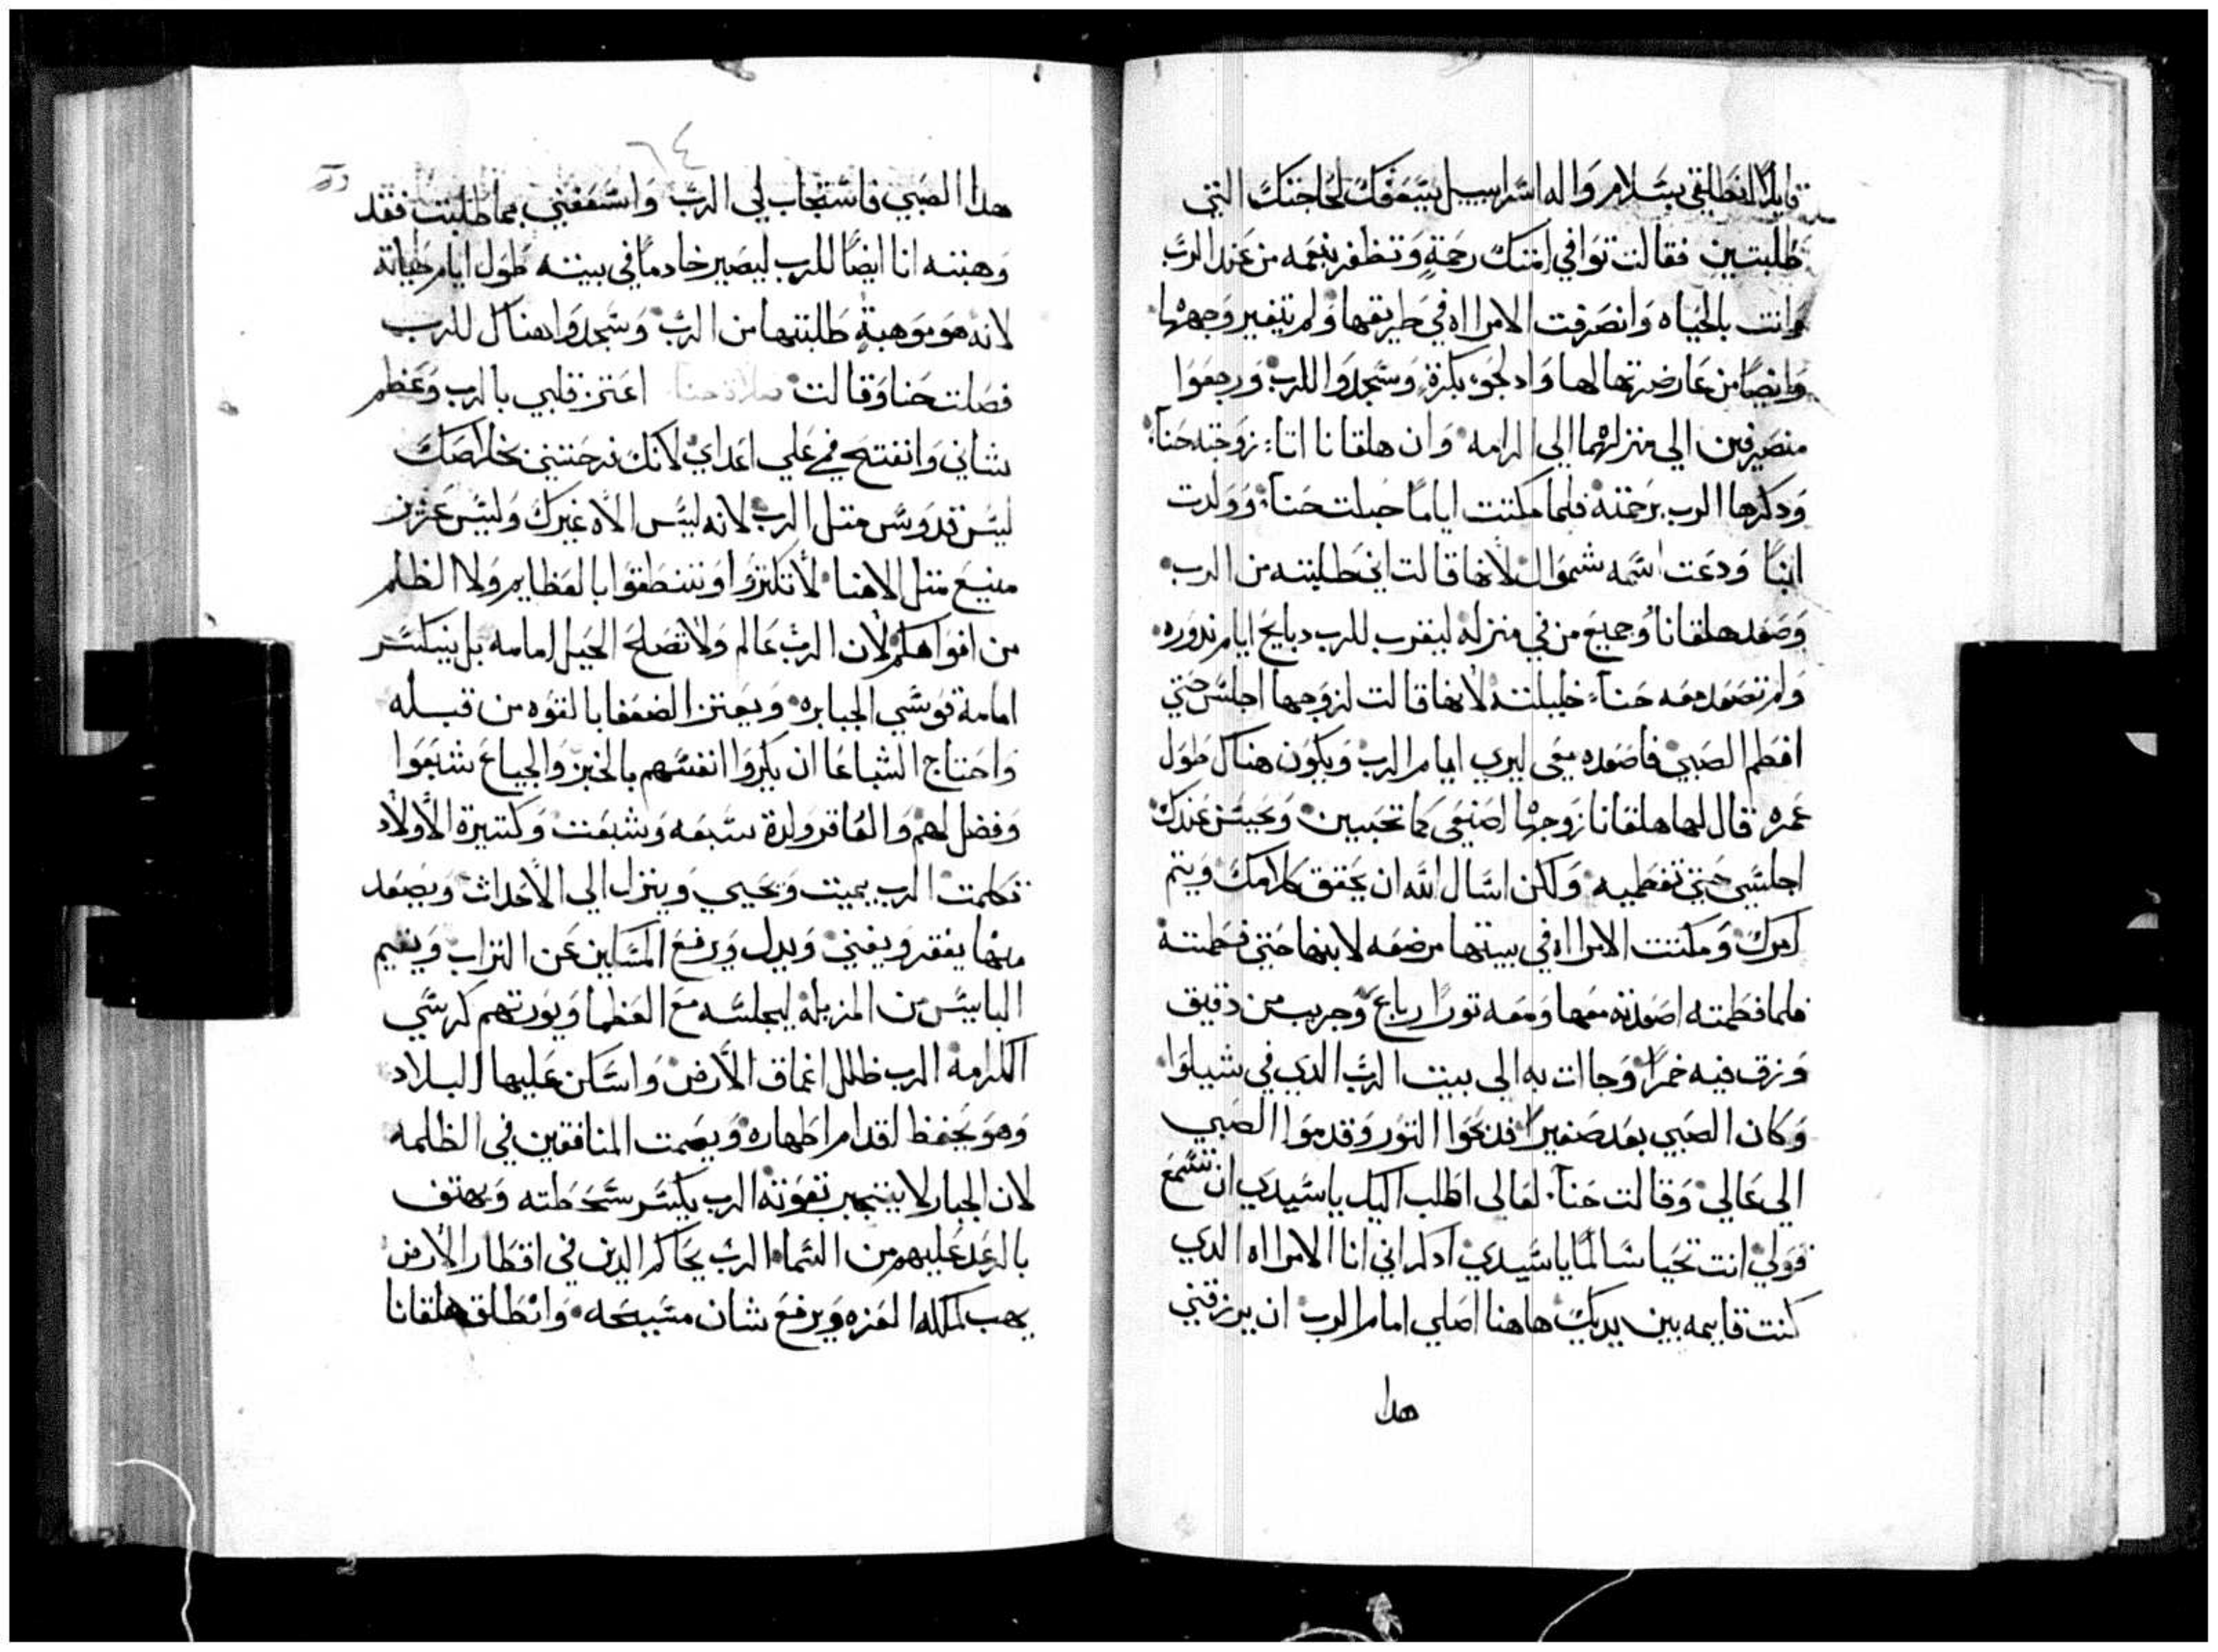 قايلاً انطلقي بسلام واله اسراييل يسعفك لحاجتك التي
طلبتين فقالت توافي امتك رحمة وتظفر بنعمه من عند الرب
وانت بالحياه وانصرفت الامراه في طريقها ولم يتغير وجهها
وايضًا من عارضتها لها وادلجوا بكرة وسجدوا للرب ورجعوا
منصرفين الي منزلهما الي الرامه وان هلقانا اتا زوجته حنا
ودكرها الرب برحمته فلما مكتت ايامًا حبلت حنا وولدت
ابنًا ودعت اسمه شموال لانها قالت اني طلبته من الرب
وصعد هلقانا وجميع من في منزله ليقرب للرب دبايح ايام ندوره
ولم تصعد معه حنا خليلته لانها قالت لزوجها اجلس حتي
افطم الصبي فاصعده معي ليري ايام الرب ويكون هناك طول
عمره قال لها هلقانا زوجها اصنعي كما تحبين ويحسن عندك
اجلسي حتي تفطميه ولكن اسال الله ان يحقق كلامك ويتم
امرك ومكتت الامراه في بيتها مرضعه لابنها حتي فطمته
فلما فطمته اصعدته معها ومعه تورًا رباع وجريب من دقيق
وزق فيه خمرًا وجاات به الي بيت الرب الدي في شيلوا
وكان الصبي بعد صغيرًا فدبحوا التور وقدموا الصبي
الي عالي وقالت حنا لعالي اطلب اليك ياسيدي ان تسمع
قولي انت تحيا سالمًا ياسيدي ادكر اني انا الامراه الدي
كنت قايمه بين يديك هاهنا اصلي امام الرب ان يرزقني
هدا
٦٤
هدا الصبي فاستجاب لي الرب واسعفني بما طلبت فقد
وهبته انا ايضًا للرب ليصير خادمًا في بيته طول ايام حياته
لانه هو موهبة طلبتها من الرب وسجدوا هناك للرب
فصلت حنا وقالت صلاة حنا اعتز قلبي بالرب وعظم
شاني وانفتح في علي اعداي لانك فرحتني بخلاصك
ليس قدوس متل الرب لانه ليس الاه غيرك وليس عزيز
منيع متل الاهنا لا تكتروا وتنطقوا بالعظايم ولا الظلم
من افواهكم لان الرب عالم ولا تصلح الحيل امامه بل ينكسر
امامة قوسي الجبابره ويعتز الضعفا بالقوه من قبله
واحتاج الشباعا ان يكروا انفسهم بالخبز والجياع شبعوا
وفضل لهم والعاقر ولدة سبعه وشبعت وكتيرة الاولاد
تكلمت الرب يميت ويحيي وينزل الي الاحداث ويصعد
منها يفقر ويغني ويدل ويرفع المساكين عن التراب ويقيم
البايس من المزبله ليجلسه مع العظما ويورتهم كرسي
الكرامه الرب ظلل اعماق الارض واسكن عليها البلاد
وهو يحفظ اقدام اطهاره ويصمت المنافقين في الظلمه
لان الجبار لا يتجبر بقوته الرب يكسر سخطته ويهتف
بالرعد عليهم من السما الرب يحاكم الدين في اقطار الارض
يهب لملكه العزه ويرفع شان مسيحه وانطلق هلقانا